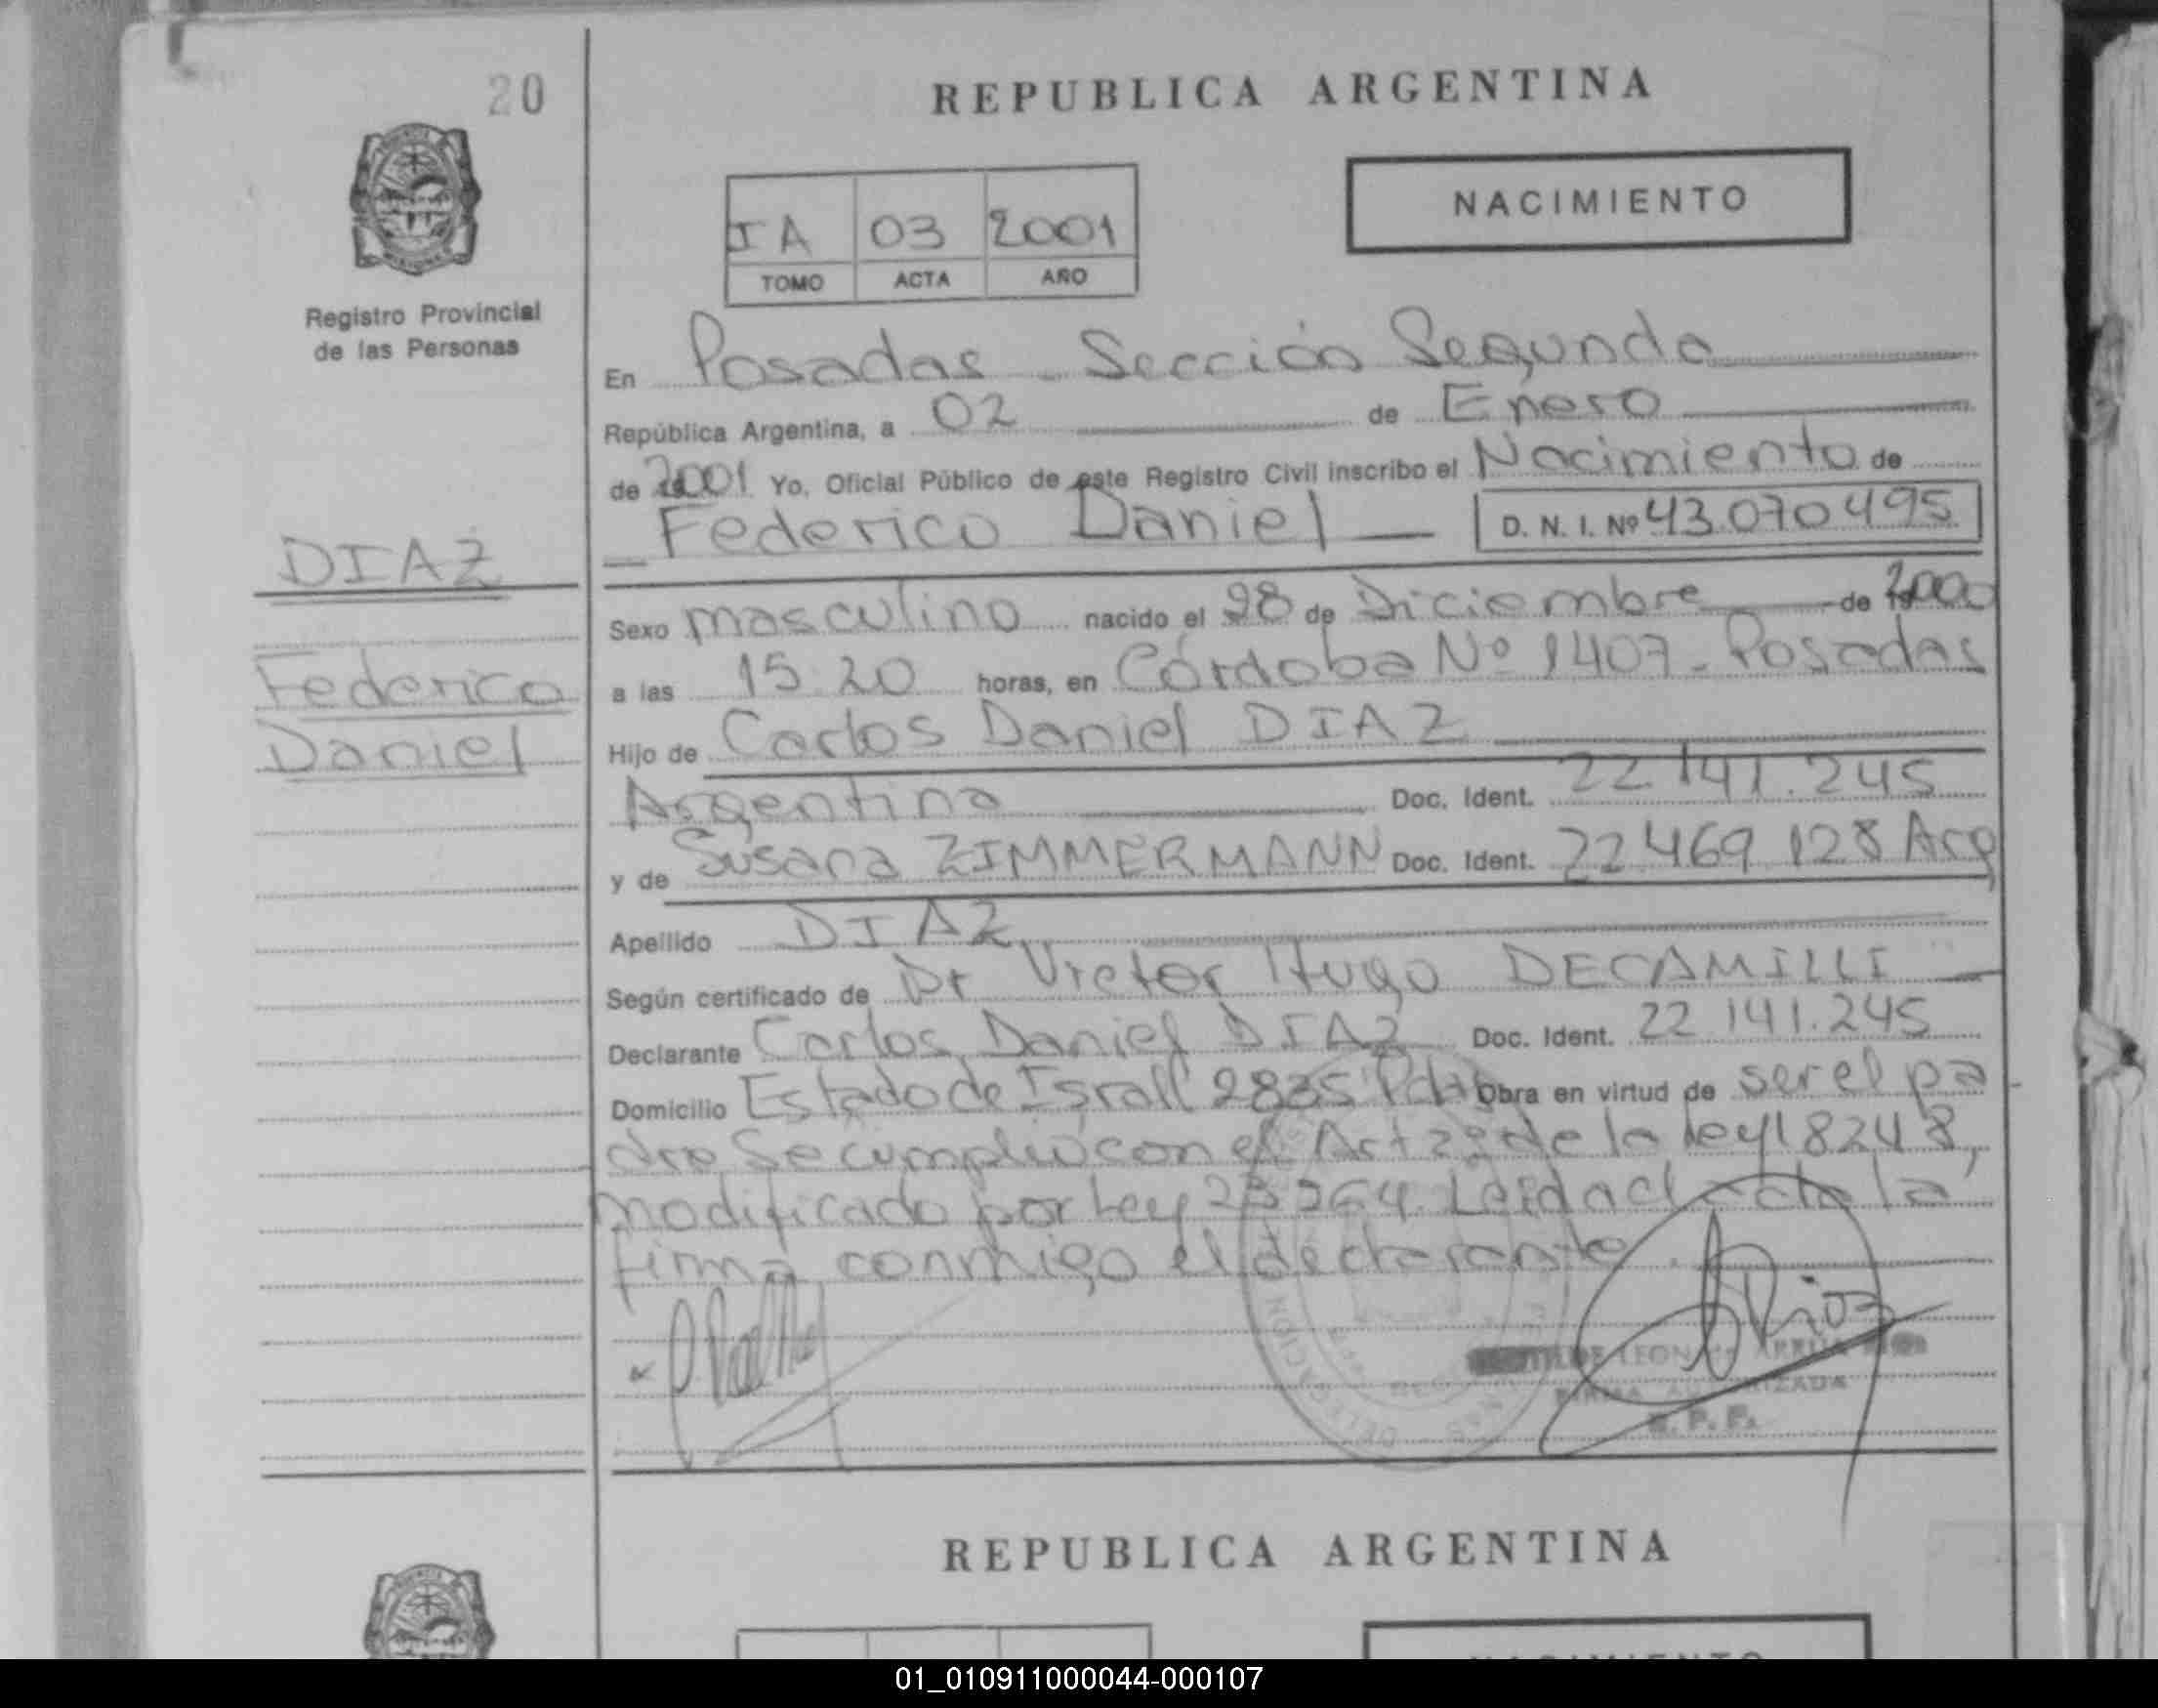 20
REPUBLICA ARGENTINA
NACIMIENTO
IA 03 2001
TOMO ACTA AÑO
Registro Provincial
de las Personas
En Posadas - Sección Segunda
República Argentina, a 02 de Enero
de 2001 Yo, Oficial Público de este Registro Civil inscribo el Nacimiento de
Federico Daniel — D. N. I. Nº 43.070.495
DIAZ
Federico
Daniel
Sexo masculino nacido el 28 de Diciembre de 2000
a las 15.20 horas, en Córdoba Nº 1407 - Posadas
Hijo de Carlos Daniel DIAZ
Argentino Doc. Ident. 22.141.245
y de Susana ZIMMERMANN Doc. Ident. 22 469 128 Arg
Apellido DIAZ
Según certificado de Dr Victor Hugo DECAMILLI
Declarante Carlos Daniel DIAZ Doc. Ident. 22 141.245
Domicilio Estado de Israll 2835 Pdas Obra en virtud de ser el pa
dre Se cumplió con el Art 2º de la ley 18248,
modificado por Ley 23264. Leida el acta la
firma conmigo el declarante.
FIRMA AUTORIZADA
REPUBLICA ARGENTINA
NACIMIENTO
01_010911000044-000107